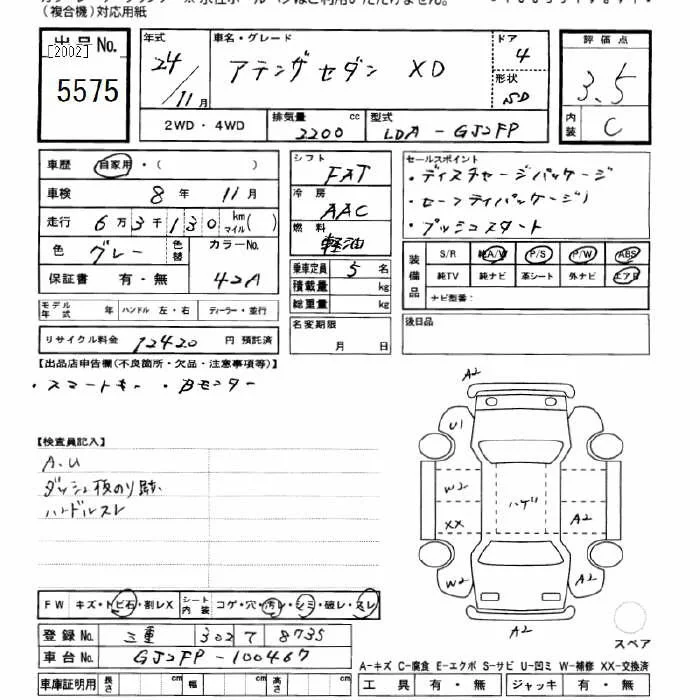 (複合機)対応用紙
出品No.
[2002]
5575
年式 24/11月
車名・グレード アテンザセダン XD
ドア 4
形状 SD
2WD・4WD
排気量 2200 cc
型式 LDA-GJ2FP
評価点 3.5
内装 C
車歴 自家用・( )
車検 8年 11月
走行 6万3千130 km マイル( )
色 グレー 色替 カラーNo. 42A
保証書 有・無
モデル年式 年 ハンドル 左・右 ディーラー・並行
リサイクル料金 12420 円 預託済
シフト FAT
冷房 AAC
燃料 軽油
乗車定員 5 名
積載量 kg
総重量 kg
名変期限 月 日
セールスポイント
・ディスチャージパッケージ
・セーフティパッケージ1
・プッシュスタート
装備品 S/R 純A/W P/S P/W ABS
純TV 純ナビ 革シート 外ナビ エアB
ナビ型番:
後日品
【出品店申告欄(不良箇所・欠品・注意事項等)】
・スマートキー ・Bモニター
【検査員記入】
A.U
ダッシュ板のり跡
ハンドルスレ
FW キズ・トビ石・割レX シート内装 コゲ・穴・汚レ・シミ・破レ・スレ
登録No. 三重 302 て 8735
車台No. GJ2FP-100467
車庫証明用 長さ cm 幅 cm 高さ cm
A2
U1
W2
XX
W2
ハゲ
A2
A2
A2
スペア
A-キズ C-腐食 E-エクボ S-サビ U-凹ミ W-補修 XX-交換済
工具 有・無 ジャッキ 有・無